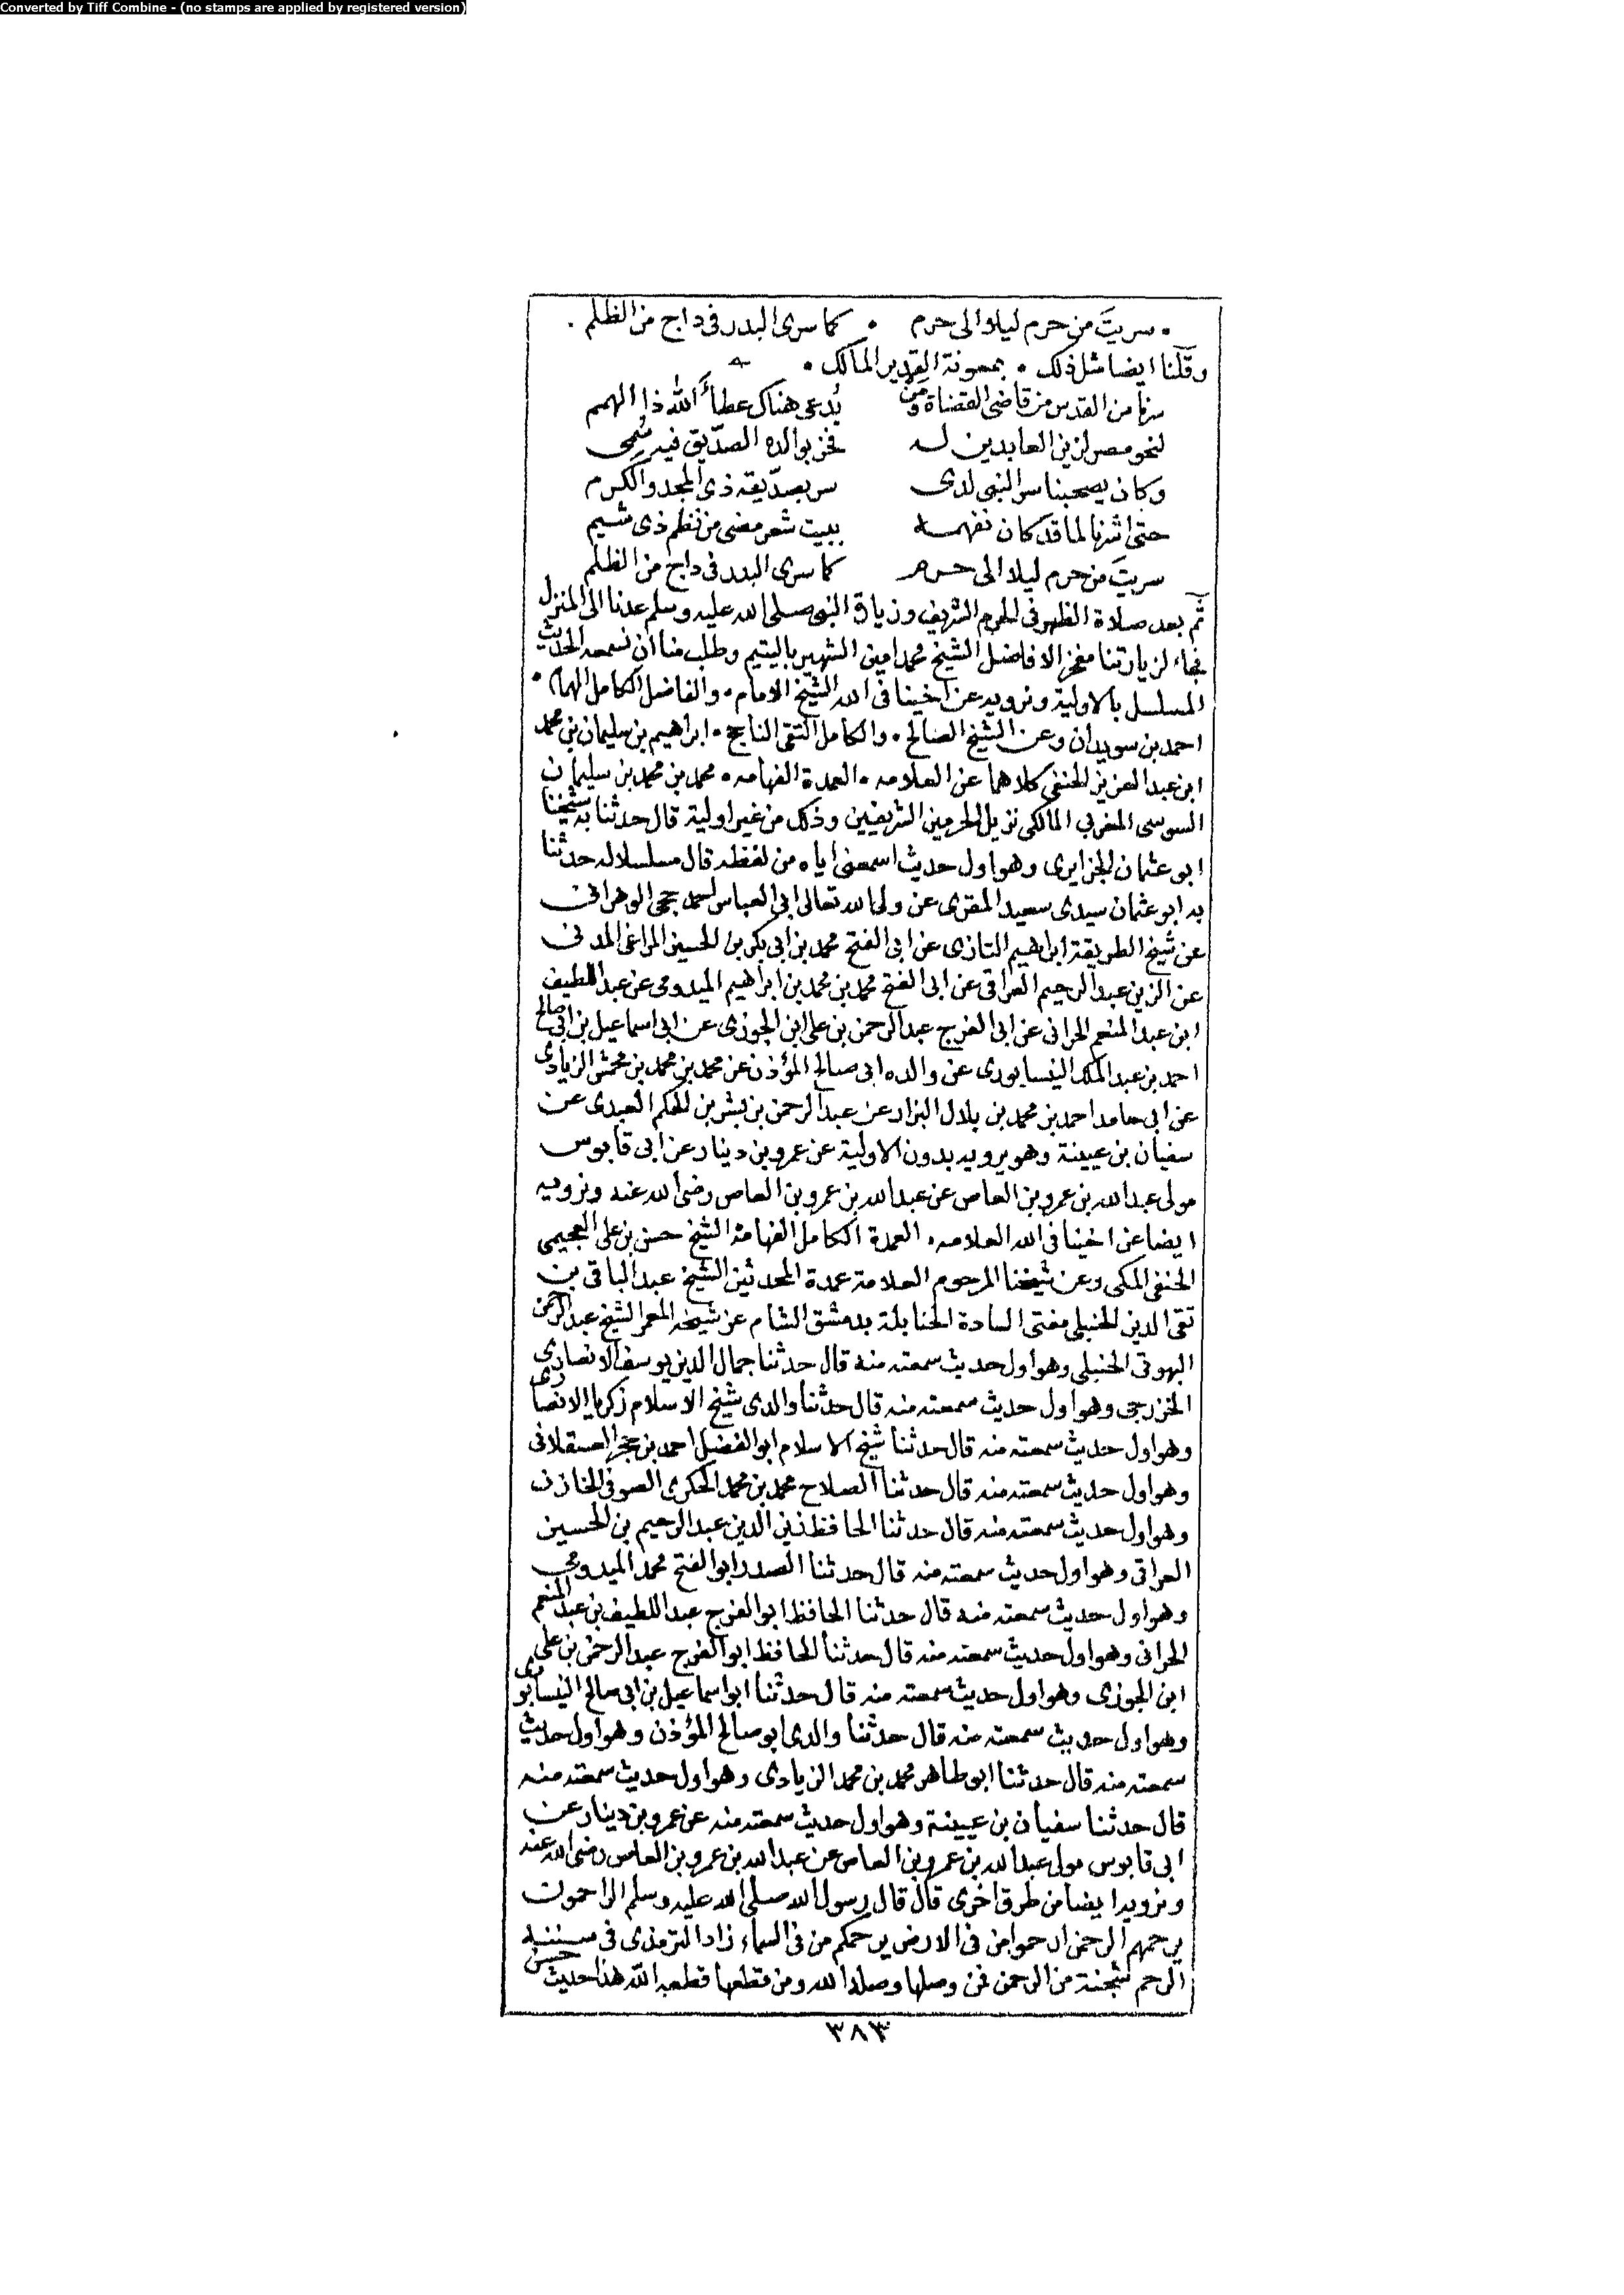 Converted by Tiff Combine - (no stamps are applied by registered version)
• سريتَ من حرم ليلا الى حرم • كما سرى البدر فى داج من الظلم •
وقلنا ايضا مثل ذلك • بمعونة القدير المالك •
سرنا من القدس من قاضى القضاة ومَن يُدعى هناك عطاءَ الله ذا الهمم
لنحو مصر لزين العابدين له فخر بوالده الصدّيق فيه سُمِى
وكان يصحبنا سر النبى لدى سر بصدّيقه ذى المجد والكرم
حتى اشرنا لما قد كان نفهمه ببيت شعر مضى من نظم ذى شيم
سريتَ من حرم ليلا الى حرم كما سرى البدر فى داج من الظلم
ثم بعد صلاة الظهر فى الحرم الشريف وزيارة النبى صلى الله عليه وسلم عدنا الى المنزل
فجاء لزيارتنا مفخر الافاضل الشيخ محمد امين الشهير باليتيم وطلب منا ان نسمعه الحديث
المسلسل بالاولية ونرويه عن اخينا فى الله الشيخ الامام • والفاضل الكامل الهمام •
احمد بن سويدان وعن الشيخ الصالح • والكامل التقى الناجح • ابراهيم بن سليمان بن محمد
ابن عبد العزيز الحنفى كلاهما عن العلامه • العمدة الفهامه • محمد بن محمد بن سليمان
السوسى المغربى المالكى نزيل الحرمين الشريفين وذلك من غير اولية قال حدثنا به شيخنا
ابو عثمان الجزايرى وهو اول حديث اسمعنى اياه من لفظه قال مسلسلا له حدثنا
به ابو عثمان سيدى سعيد المقرى عن ولى الله تعالى ابى العباس احمد حجى الوهرانى
عن شيخ الطريقة ابراهيم التازى عن ابى الفتح محمد بن ابى بكر بن الحسين المراغى المدنى
عن الزين عبد الرحيم العراقى عن ابى الفتح محمد بن محمد بن ابراهيم الميدومى عن عبد اللطيف
ابن عبد المنعم الحرانى عن ابى الفرج عبد الرحمن بن على ابن الجوزى عن ابى اسماعيل بن ابى صالح
احمد بن عبد الملك النيسابورى عن والده ابى صالح المؤذن عن محمد بن محمد بن محمش الزيادى
عن ابى حامد احمد بن محمد بن بلال البزار عن عبد الرحمن بن بشر بن الحكم العبدى عن
سفيان بن عيينة وهو يرويه بدون الاولية عن عمرو بن دينار عن ابى قابوس
مولى عبد الله بن عمرو بن العاص عن عبد الله بن عمرو بن العاص رضى الله عنه ونرويه
ايضا عن اخينا فى الله العلامه • العمدة الكامل الفهامة الشيخ حسن بن على العجيمى
الحنفى المكى وعن شيخنا المرحوم العلامة عمدة المحدثين الشيخ عبد الباقى بن
تقى الدين الحنبلى مفتى السادة الحنابلة بدمشق الشام عن شيخه المعمر الشيخ عبد الرحمن
البهوتى الحنبلى وهو اول حديث سمعته منه قال حدثنا جمال الدين يوسف الانصارى
الخزرجى وهو اول حديث سمعته منه قال حدثنا والدى شيخ الاسلام زكريا الانصارى
وهو اول حديث سمعته منه قال حدثنا شيخ الاسلام ابو الفضل احمد بن حجر العسقلانى
وهو اول حديث سمعته منه قال حدثنا الصلاح محمد بن محمد الحكرى الصوفى الخازن
وهو اول حديث سمعته منه قال حدثنا الحافظ زين الدين عبد الرحيم بن الحسين
العراقى وهو اول حديث سمعته منه قال حدثنا الصدر ابو الفتح محمد الميدومى
وهو اول حديث سمعته منه قال حدثنا الحافظ ابو الفرج عبد اللطيف بن عبد المنعم
الحرانى وهو اول حديث سمعته منه قال حدثنا الحافظ ابو الفرج عبد الرحمن بن على
ابن الجوزى وهو اول حديث سمعته منه قال حدثنا ابو اسماعيل بن ابى صالح النيسابورى
وهو اول حديث سمعته منه قال حدثنا والدى ابو صالح المؤذن وهو اول حديث
سمعته منه قال حدثنا ابو طاهر محمد بن محمد الزيادى وهو اول حديث سمعته منه
قال حدثنا سفيان بن عيينة وهو اول حديث سمعته منه عن عمرو بن دينار عن
ابى قابوس مولى عبد الله بن عمرو بن العاص عن عبد الله بن عمرو بن العاص رضى الله عنه
ونرويه ايضا من طرق اخرى قال قال رسول الله صلى الله عليه وسلم الراحمون
يرحمهم الرحمن ارحموا من فى الارض يرحمكم من فى السماء زاد الترمذى فى سننه
الرحم شجنة من الرحمن فمن وصلها وصله الله ومن قطعها قطعه الله هذا حديث حسن
٣٨٣